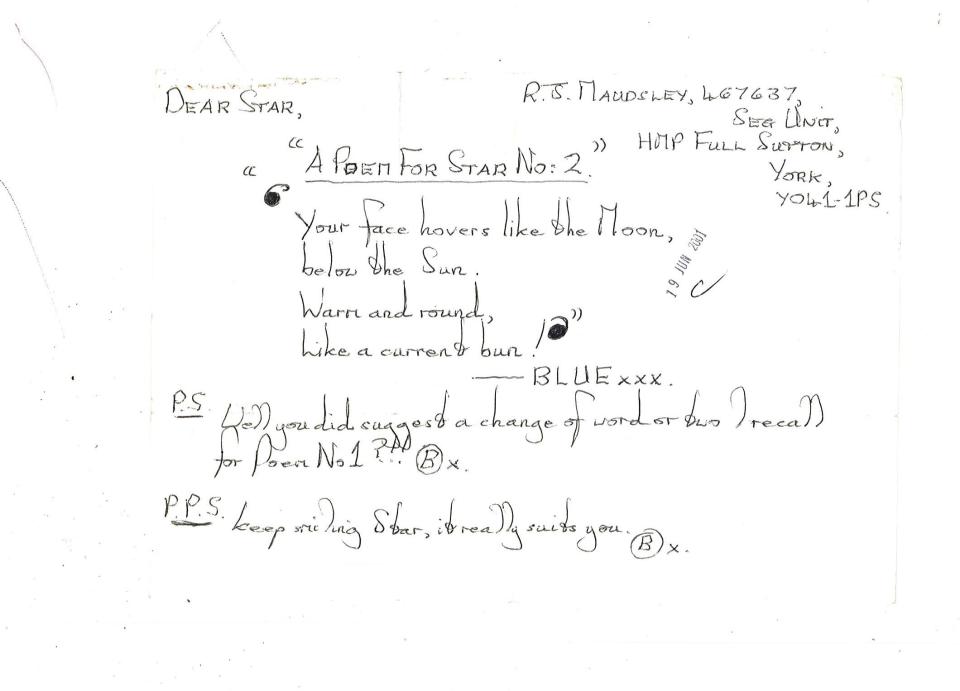 DEAR STAR,
R.J. MAUDSLEY, 467637,
SEG UNIT,
HMP FULL SUTTON,
YORK,
YO41-1PS
"A POEM FOR STAR NO: 2."
"
Your face hovers like the Moon,
below the Sun.
Warm and round,
Like a current bun!"
19 JUN 2001
— BLUE xxx.
P.S. Well you did suggest a change of word or two I recall
for Poem No 1 ?!!! B x.
P.P.S. keep smiling Star, it really suits you. B x.